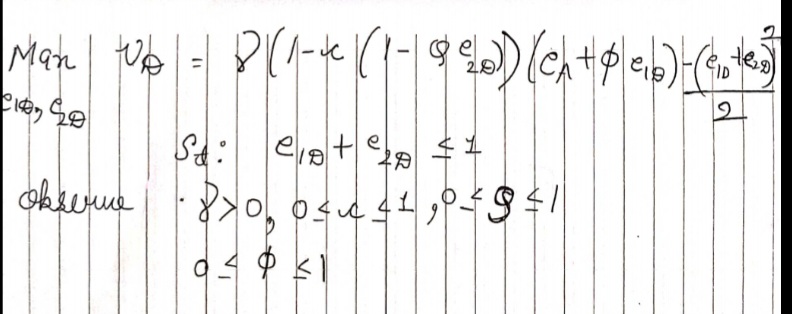 Max U_D = γ(1-x(1-ρ e_{2D}))(e_A + φ e_{1D}) - (e_{1D}+e_{2D})^2 / 2
e_{1D}, e_{2D}
St: e_{1D} + e_{2D} ≤ 1
Observe · γ>0, 0≤x≤1, 0≤ρ≤1
0≤ φ ≤1